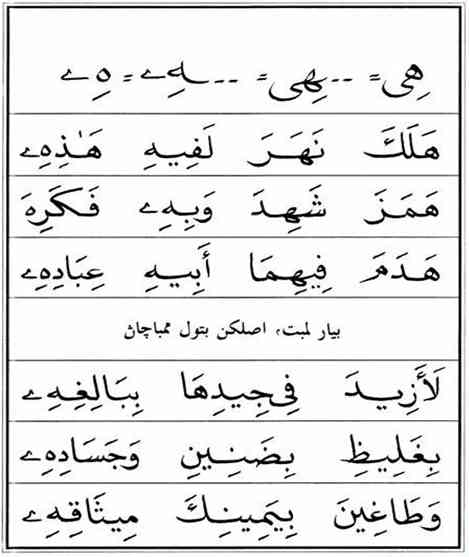 هِىۡ = -- هِىۡ = -- ـهِۦ = هِۦ
هَلَكَ نَهَرَ لَفِيهِ هَـٰذِهِۦ
هَمَزَ شَهِدَ وَبِهِۦ فَكَرِهَ
هَدَمَ فِيهِمَا أَبِيهِ عِبَادِهِۦ
بيار لمبت، اصلکن بتول ممباچاڽ
لَأَزِيدَ فِى جِيدِهَا بِبَالِغِهِۦ
بِغَلِيظِ بِضَنِينِ وَجَسَادِهِۦ
وَطَاغِينَ بِيَمِينِكَ مِيثَاقِهِۦ